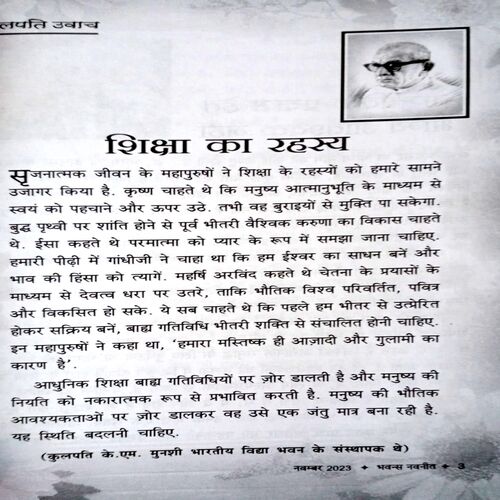 लपति उवाच
शिक्षा का रहस्य
सृजनात्मक जीवन के महापुरुषों ने शिक्षा के रहस्यों को हमारे सामने
उजागर किया है. कृष्ण चाहते थे कि मनुष्य आत्मानुभूति के माध्यम से
स्वयं को पहचाने और ऊपर उठे. तभी वह बुराइयों से मुक्ति पा सकेगा.
बुद्ध पृथ्वी पर शांति होने से पूर्व भीतरी वैश्विक करुणा का विकास चाहते
थे. ईसा कहते थे परमात्मा को प्यार के रूप में समझा जाना चाहिए.
हमारी पीढ़ी में गांधीजी ने चाहा था कि हम ईश्वर का साधन बनें और
भाव की हिंसा को त्यागें. महर्षि अरविंद कहते थे चेतना के प्रयासों के
माध्यम से देवत्व धरा पर उतरे, ताकि भौतिक विश्व परिवर्तित, पवित्र
और विकसित हो सके. ये सब चाहते थे कि पहले हम भीतर से उत्प्रेरित
होकर सक्रिय बनें, बाह्य गतिविधि भीतरी शक्ति से संचालित होनी चाहिए.
इन महापुरुषों ने कहा था, 'हमारा मस्तिष्क ही आज़ादी और गुलामी का
कारण है'.
आधुनिक शिक्षा बाह्य गतिविधियों पर ज़ोर डालती है और मनुष्य की
नियति को नकारात्मक रूप से प्रभावित करती है. मनुष्य की भौतिक
आवश्यकताओं पर ज़ोर डालकर वह उसे एक जंतु मात्र बना रही है.
यह स्थिति बदलनी चाहिए.
(कुलपति के.एम. मुनशी भारतीय विद्या भवन के संस्थापक थे)
नवम्बर 2023 ✦ भवन्स नवनीत ✦ 3